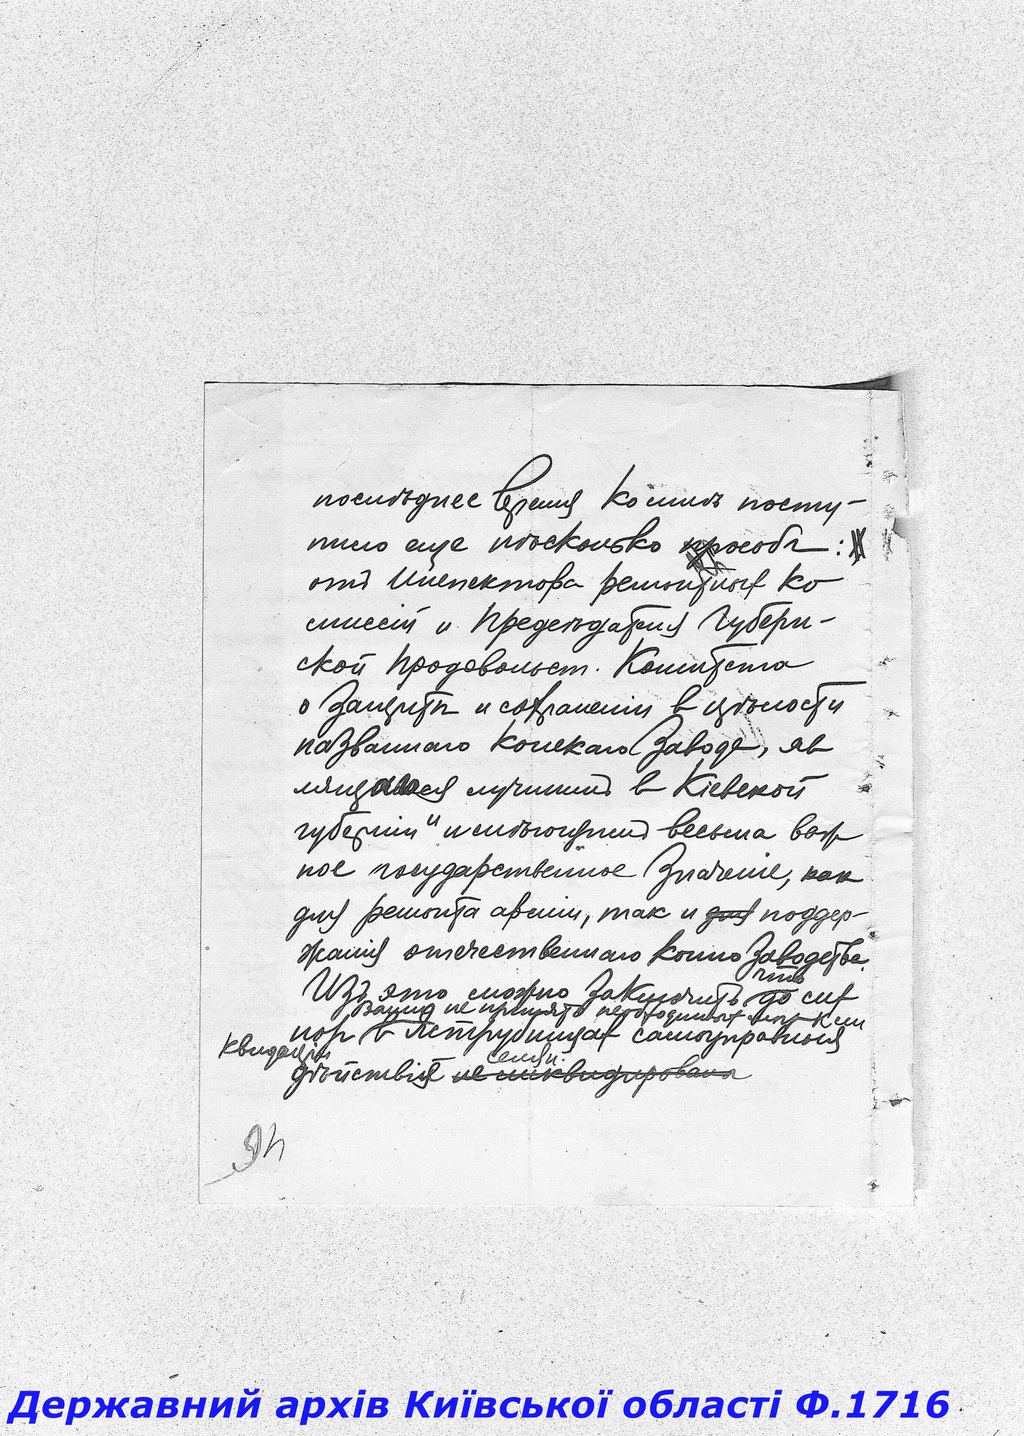 последнее время ко мнѣ посту-
пило еще нѣсколько просьбъ:
отъ Инспектора ремонтныхъ ко
миссій и Предсѣдателя Губерн-
ской Продовольст. Комитета
о защитѣ и сохраненіи в цѣлости
названнаго конскаго завода, яв
ляющагося лучшимъ в Кіевской
губерніи и имѣющимъ весьма важ
ное государственное значеніе, как
для ремонта арміи, так и для поддер-
жанія отечественнаго конно заводства.
Изъ это можно заключить что до сих
Вами не принято необходимых мѣръ к ли
пор в Ястребищах самоуправныя
квидаціи
дѣйствія не ликвидированы
94
Державний архів Київської області Ф.1716